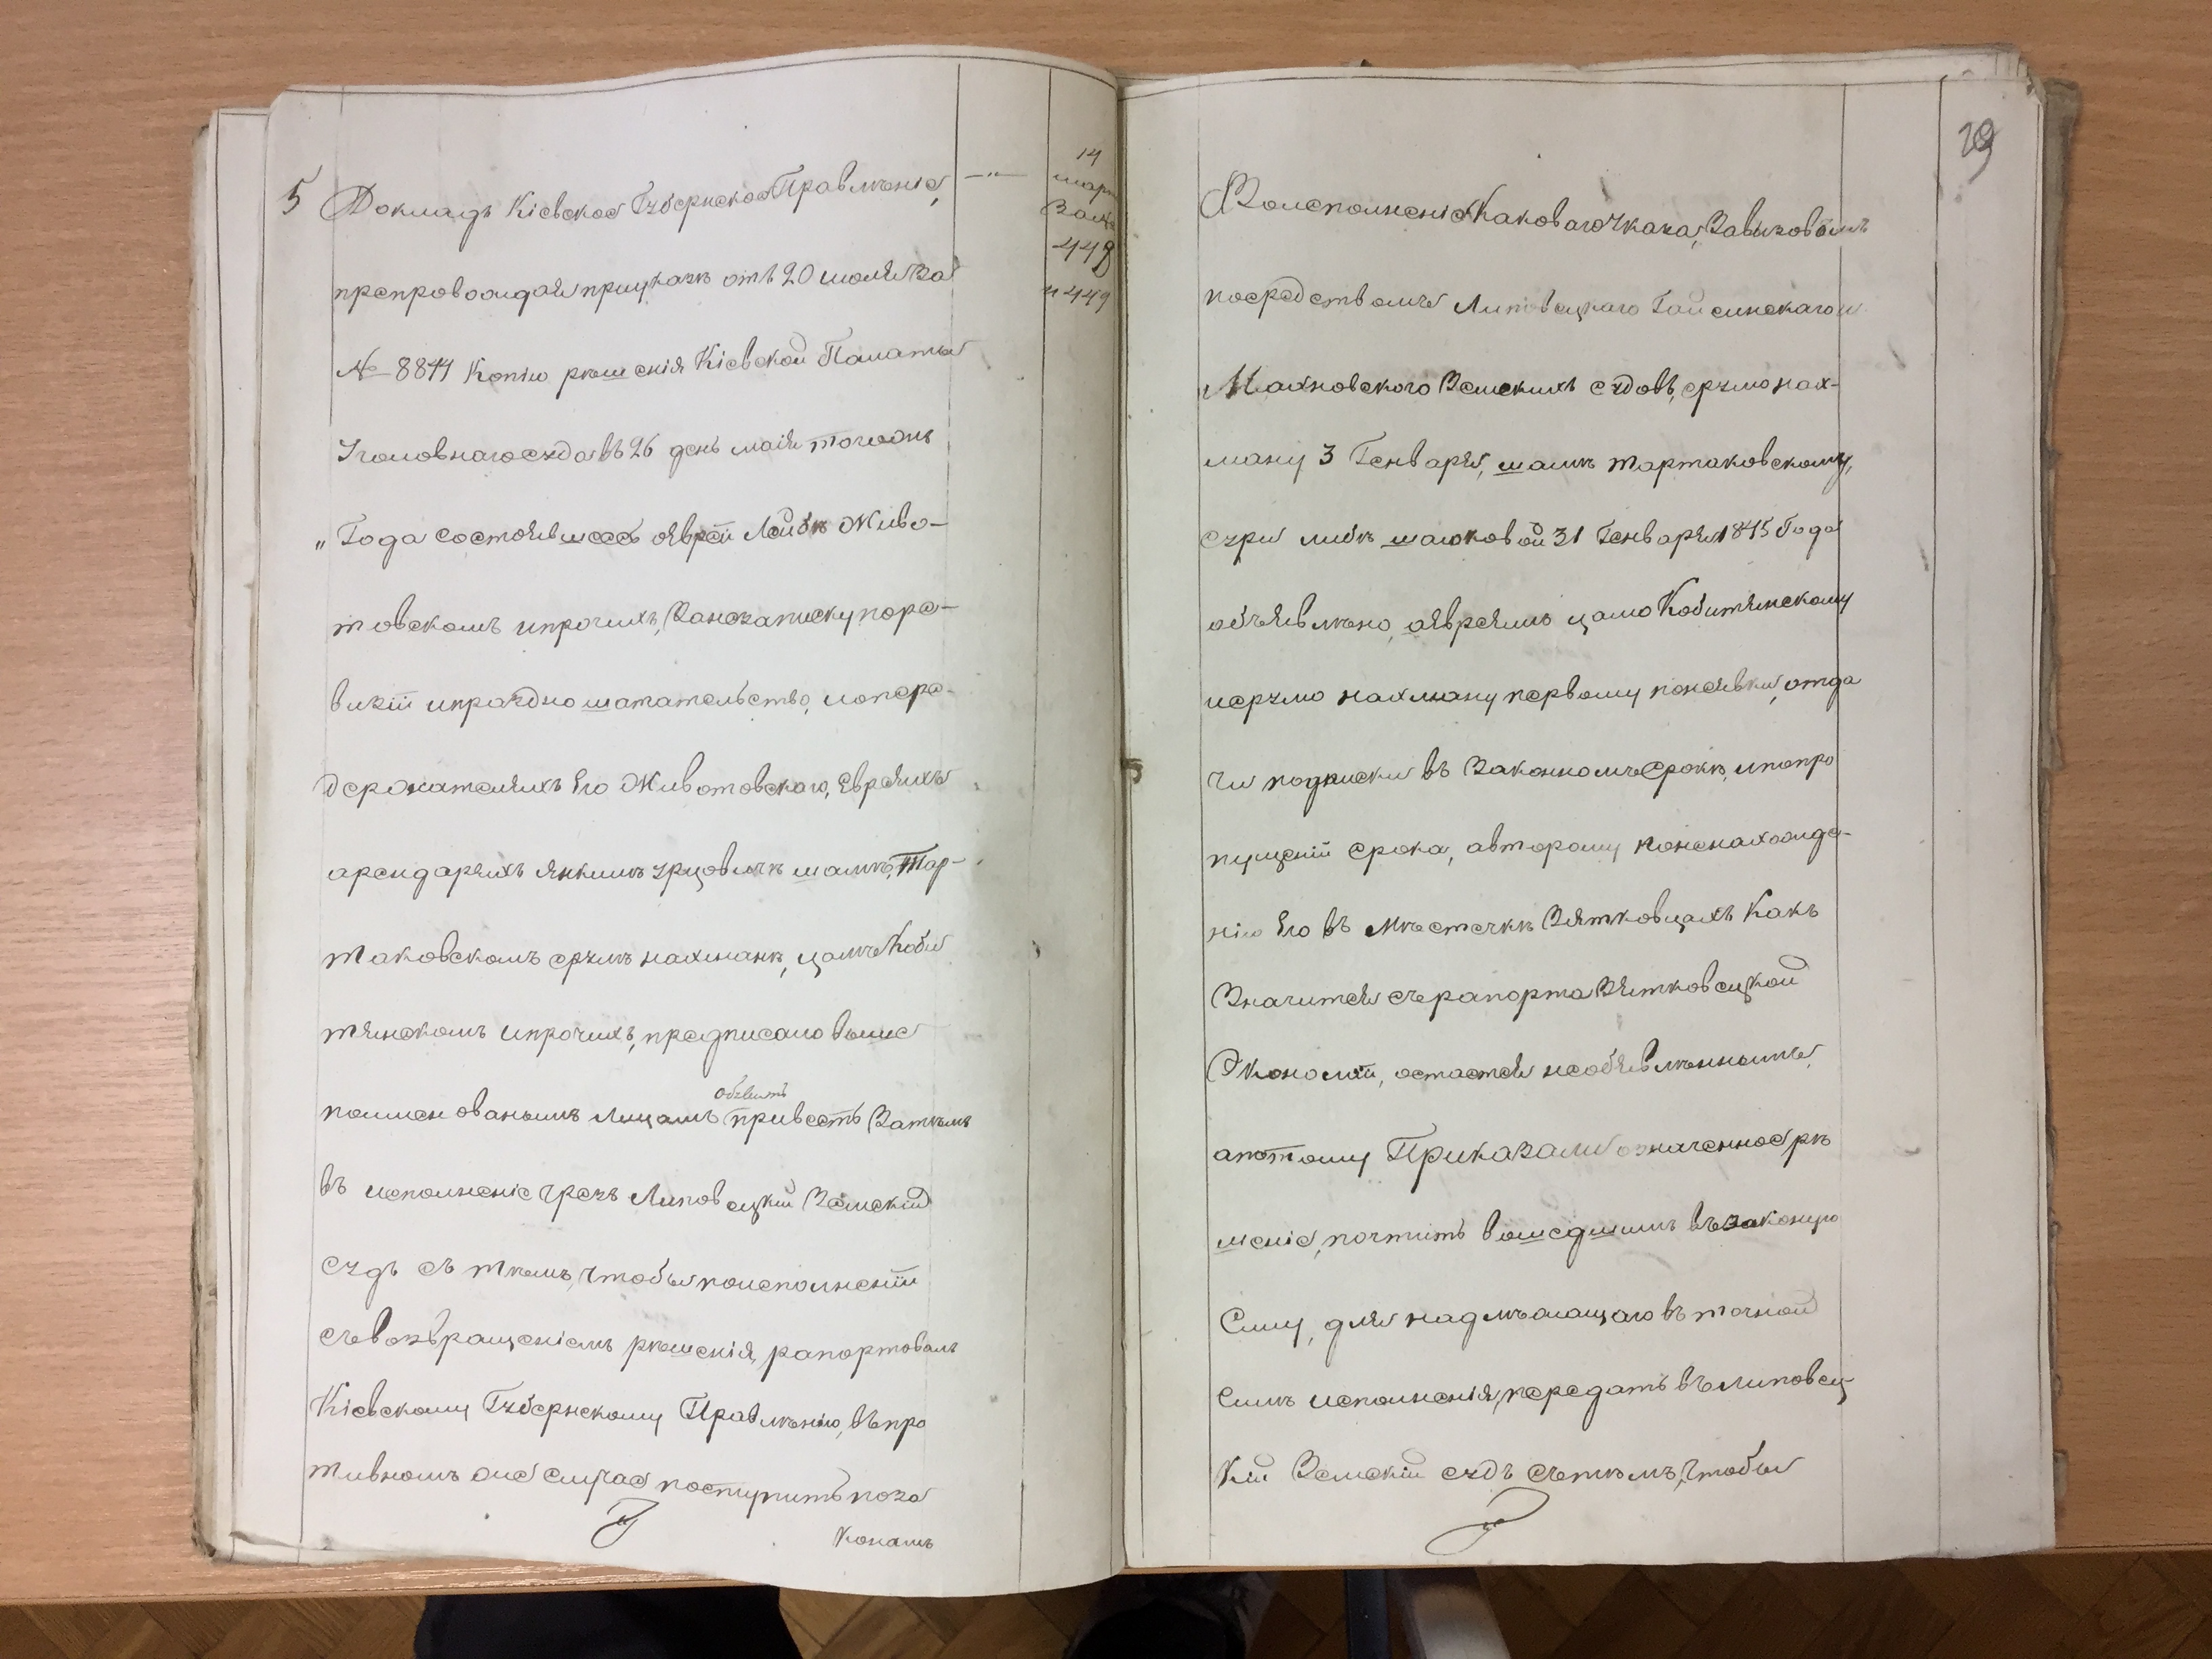 5 Докладъ Кіевское Губернское Правленіе,
препровождая при указѣ отъ 20 июля за
№ 8844 Копію рѣшенія Кіевской Палаты
Уголовнаго суда въ 26 день маія того жъ
„ Года состоявшееся о еврей Лейбѣ Живо-
товскомъ и прочихъ, за незаписку по ре-
визіи и праздно шатательство, и о пере-
держателяхъ Его Животовскаго, Евреяхъ
арендаряхъ Янкилѣ Урцовичѣ шаппѣ, Тар-
таковскомъ срулѣ нахманѣ, цалѣ Коби
тянскомъ и прочихъ, предписало выше
объявить
поименованымъ Лицамъ привесть затѣмъ
въ исполненіе чрезъ Липовецкій Земскій
Судъ съ тѣмъ, чтобы по исполненіи
съ возвращеніемъ рѣшенія, рапортовалъ
Кіевскому Губернскому Правлѣнію, въ про
тивномъ же случаѣ поступить по за
конамъ
14
март
448
и 449
29
Во исполненіе каковаго указа, за вызовомъ
посредствомъ Липовецкаго Гайсинскаго и
Махновского Земскихъ судовъ, срулю нах-
ману 3 Генваря, Тартаковскому,
31 Генваря 1845 Года
объявлѣно, а евреямъ цалю Кобитянскому
и срулю нахману первому по неявки, отда
чи подписки въ законномъ срокѣ, и по про
пущеніи срока, а второму по ненахожде-
нію Его въ мѣстечкѣ Зятковцахъ Какъ
Значится съ рапорта Зятковецкой
Экономіи, остается необъявлѣннымъ,
а потому Приказали означенное рѣ
шеніе, почтить вошедшимъ въ законую
Силу, для надлѣжащаго въ точной
Силѣ исполненія, передать въ липовец-
кій Земскій судъ съ тѣмъ, чтобы